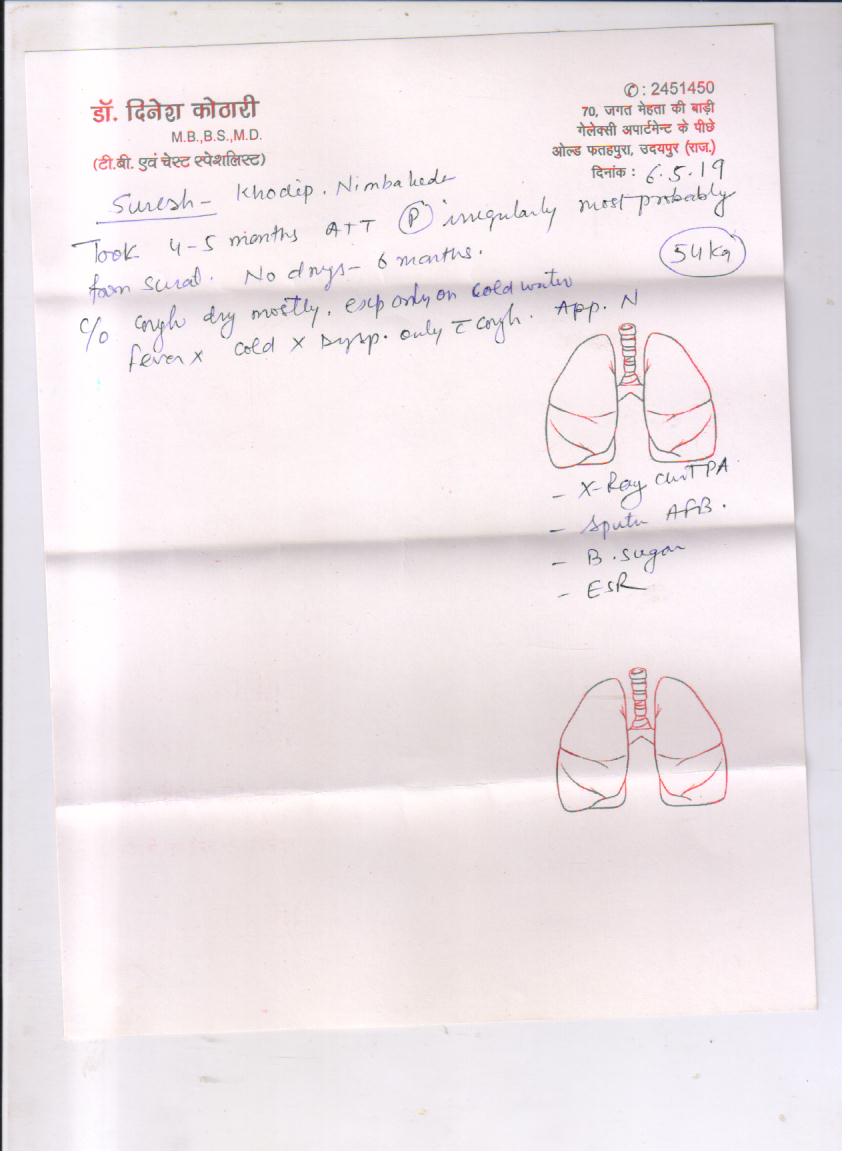 डॉ. दिनेश कोठारी
M.B.,B.S.,M.D.
(टी.बी. एवं चेस्ट स्पेशलिस्ट)
✆: 2451450
70, जगत मेहता की बाड़ी
गेलेक्सी अपार्टमेन्ट के पीछे
ओल्ड फतहपुरा, उदयपुर (राज.)
दिनांक : 6.5.19
Suresh - Khodip.
Took 4-5 months ATT (P) irregularly most probably
from Surat. No drugs - 6 months.
54 kg
c/o cough dry mostly. esp only on cold water
fever x cold x Dysp. only c̄ cough. App. N
- X-Ray Chest PA
- Sputum AFB.
- B. sugar
- ESR